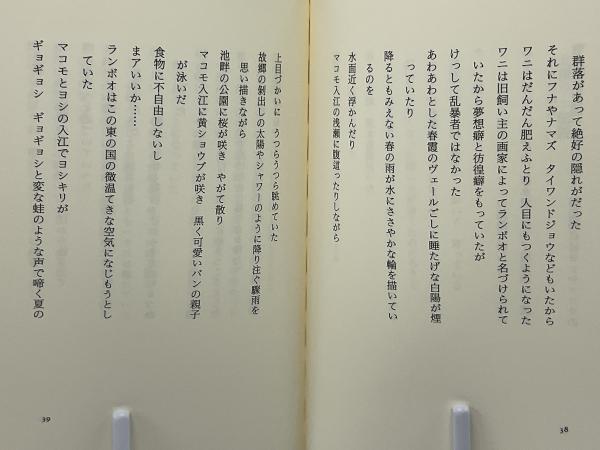 群落があって絶好の隠れがだった
それにフナやナマズ　タイワンドジョウなどもいたから
ワニはだんだん肥えふとり　人目にもつくようになった
ワニは旧飼い主の画家によってランボオと名づけられて
いたから夢想癖と彷徨癖をもっていたが
けっして乱暴者ではなかった
あわあわとした春霞のヴェールごしに睡たげな白陽が煙
っていたり
降るともみえない春の雨が水にささやかな輪を描いてい
るのを
水面近く浮かんだり
マコモ入江の浅瀬に腹這ったりしながら
38
上目づかいに　うつらうつら眺めていた
故郷の剝出しの太陽やシャワーのように降り注ぐ驟雨を
思い描きながら
池畔の公園に桜が咲き　やがて散り
マコモ入江に黄ショウブが咲き　黒く可愛いバンの親子
が泳いだ
食物に不自由しないし
まアいいか……
ランボオはこの東の国の微温てきな空気になじもうとし
ていた
マコモとヨシの入江でヨシキリが
ギョギョシ　ギョギョシと変な蛙のような声で啼く夏の
39